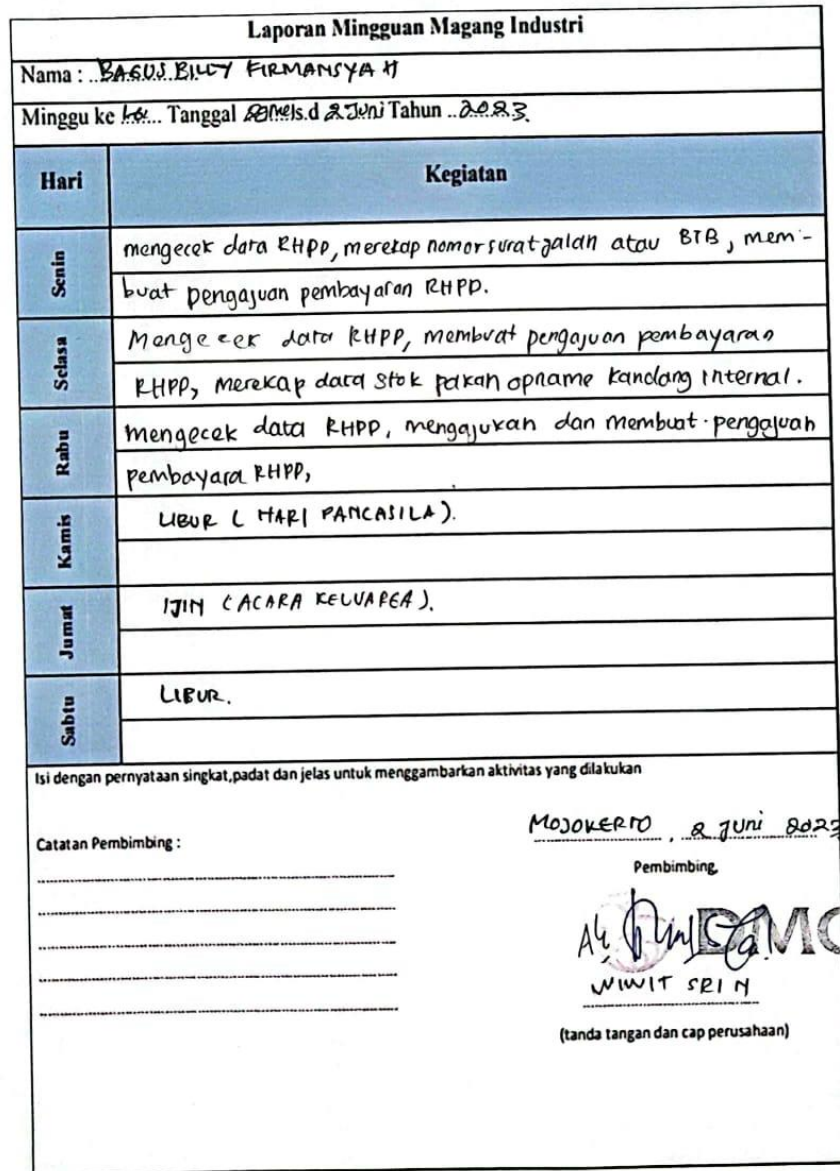 Laporan Mingguan Magang Industri
Nama : BAGUS BILLY FIRMANSYAH
Minggu ke Tanggal s.d 2 Juni Tahun 2023
Hari Kegiatan
Senin mengecek data RHPP, merekap nomor surat jalan atau BTB, mem-
buat pengajuan pembayaran RHPP.
Selasa Mengecek data RHPP, membuat pengajuan pembayaran
RHPP, merekap data stok pakan opname kandang internal.
Rabu mengecek data RHPP, mengajukan dan membuat pengajuan
pembayara RHPP,
Kamis LIBUR ( HARI PANCASILA ).
Jumat IJIN (ACARA KELUARGA).
Sabtu LIBUR.
Isi dengan pernyataan singkat,padat dan jelas untuk menggambarkan aktivitas yang dilakukan
MOJOKERTO, 2 Juni 2023
Catatan Pembimbing :
Pembimbing,
WIWIT SRI N
(tanda tangan dan cap perusahaan)